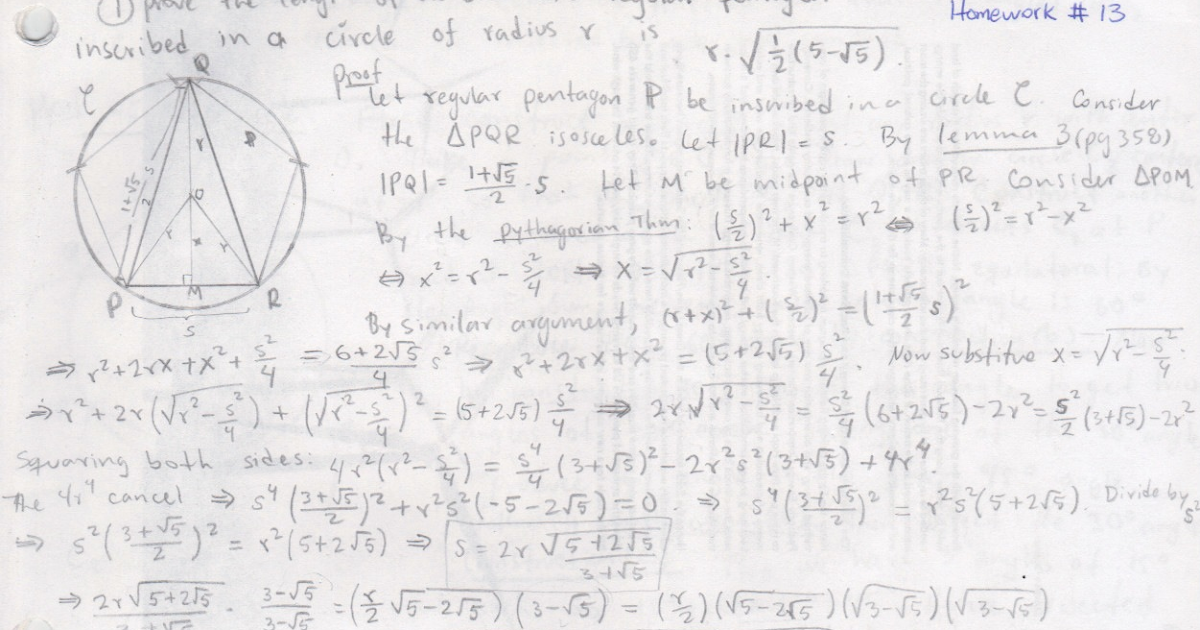 ① prove the length of regular
Homework # 13
inscribed in a circle of radius r is r·√(½(5-√5)).
Proof
Let regular pentagon P be inscribed in a circle C. Consider
the ΔPQR isosceles. Let |PR| = s. By lemma 3 (pg 358)
|PQ| = (1+√5)/2 · s Let M be midpoint of PR Consider ΔPOM
By the pythagorian Thm: (s/2)² + x² = r² ⇔ (s/2)² = r² - x²
⇔ x² = r² - s²/4 ⇒ x = √(r² - s²/4).
By similar argument, (r+x)² + (s/2)² = ((1+√5)/2 s)²
⇒ r² + 2rx + x² + s²/4 = (6+2√5)/4 s² ⇒ r² + 2rx + x² = (5+2√5) s²/4. Now substitue x = √(r² - s²/4).
⇒ r² + 2r(√(r² - s²/4)) + (√(r² - s²/4))² = (5+2√5) s²/4 ⇒ 2r√(r² - s²/4) = s²/4 (6+2√5) - 2r² = s²/2 (3+√5) - 2r²
Squaring both sides: 4r²(r² - s²/4) = s⁴/4 (3+√5)² - 2r²s²(3+√5) + 4r⁴.
the 4r⁴ cancel ⇒ s⁴((3+√5)/2)² + r²s²(-5-2√5) = 0. ⇒ s⁴((3+√5)/2)² = r²s²(5+2√5). Divide by s²
⇒ s²((3+√5)/2)² = r²(5+2√5) ⇒ s = 2r √(5+2√5)/(3+√5)
⇒ 2r√(5+2√5)/(3+√5) · (3-√5)/(3-√5) = (r/2 √(5-2√5))(3-√5) = (r/2)(√(5-2√5))(√(3-√5))(√(3-√5))
C
Q
r
P
(1+√5)/2 s
O
r
x
r
P
M
R
s